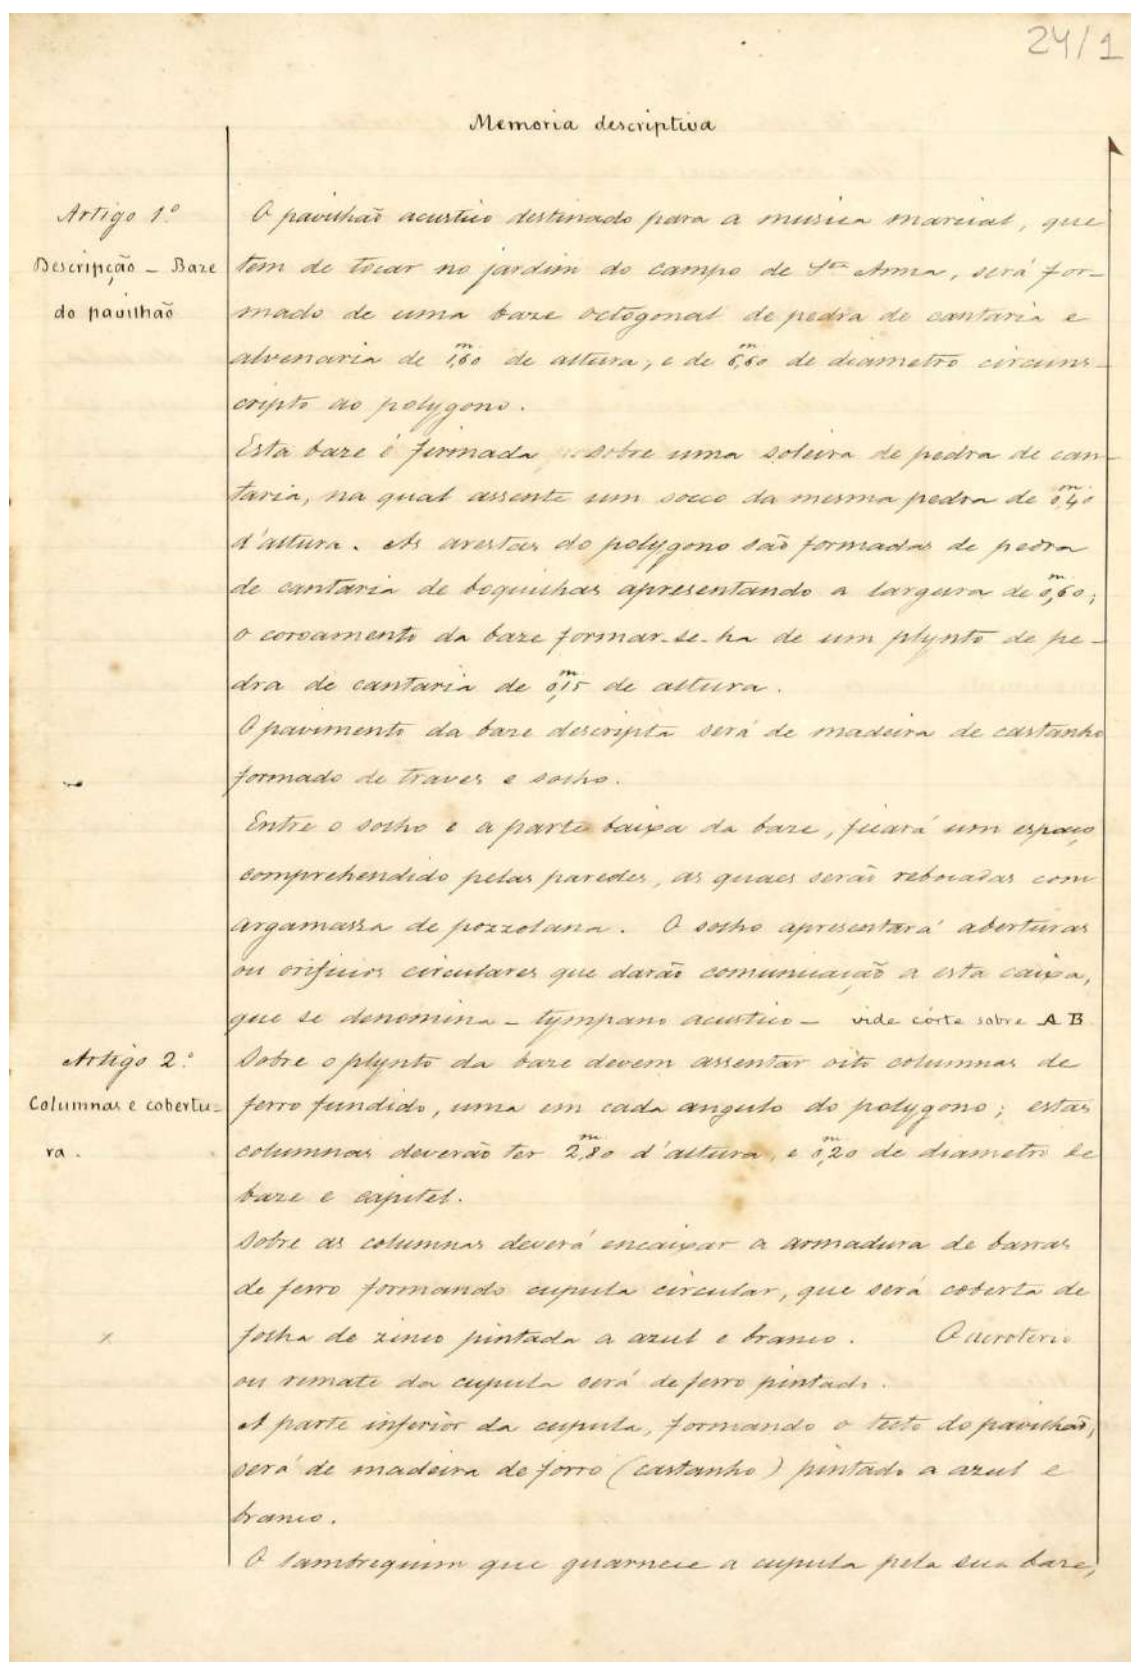 24/1
Memoria descriptiva
Artigo 1º
Descripção - Baze
do pavilhão
O pavilhão acustico destinado para a musica marcial, que
tem de tocar no jardim do campo de Sta Anna, será for-
mado de uma baze octogonal de pedra de cantaria e
alvenaria de 1,60 de altura, e de 6,60 de diametro circuns-
cripto ao polygono.
Esta baze é firmada sobre uma soleira de pedra de can-
taria, na qual assente um socco da mesma pedra de 0,40
d'altura. As arestas do polygono são formadas de pedra
de cantaria de boquinhas apresentando a largura de 0,60;
o coroamento da baze formar-se-ha de um plynto de pe-
dra de cantaria de 0,15 de altura.
O pavimento da baze descripta será de madeira de castanho
formado de traves e solho.
Entre o solho e a parte baixa da baze, ficará um espaço
comprehendido pelas paredes, as quaes serão rebocadas com
argamassa de pozzolana. O solho apresentará aberturas
ou orificios circulares que darão comunicação a esta caixa,
que se denomina - tympano acustico - vide córte sobre A B
Artigo 2º
Columnas e cobertu-
ra.
Sobre o plynto da baze devem assentar oito columnas de
ferro fundido, uma em cada angulo do polygono; estas
columnas deverão ter 2,80 d'altura, e 0,20 de diametro de
baze e capitel.
Sobre as columnas deverá encaixar a armadura de barras
de ferro formando cupula circular, que será coberta de
folha de zinco pintada a azul e branco. O acroterio
ou remate da cupula será de ferro pintado.
A parte inferior da cupula, formando o tecto do pavilhão,
será de madeira de forro (castanho) pintado a azul e
branco.
O lambrequim que guarnece a cupula pela sua baze,